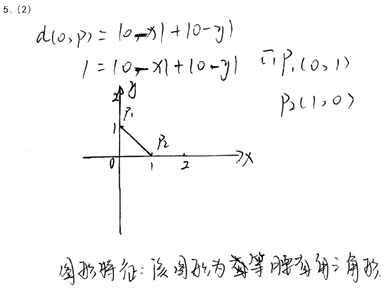 5. (2)
d(0,p) = |0-x| + |0-y|
1 = |0-x| + |0-y| 口P₁(0,1)
P₂(1,0)
2 y
P₁
1 P₂
0 1 2 x
图形特征:该图形为等腰直角三角形.